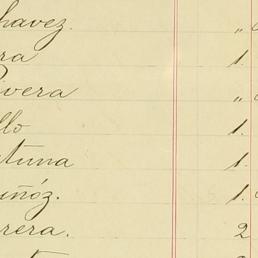 havez. "
ra 1.
Rivera "
llo 1.
tuna 1.
uñóz. 1.
rera. 2